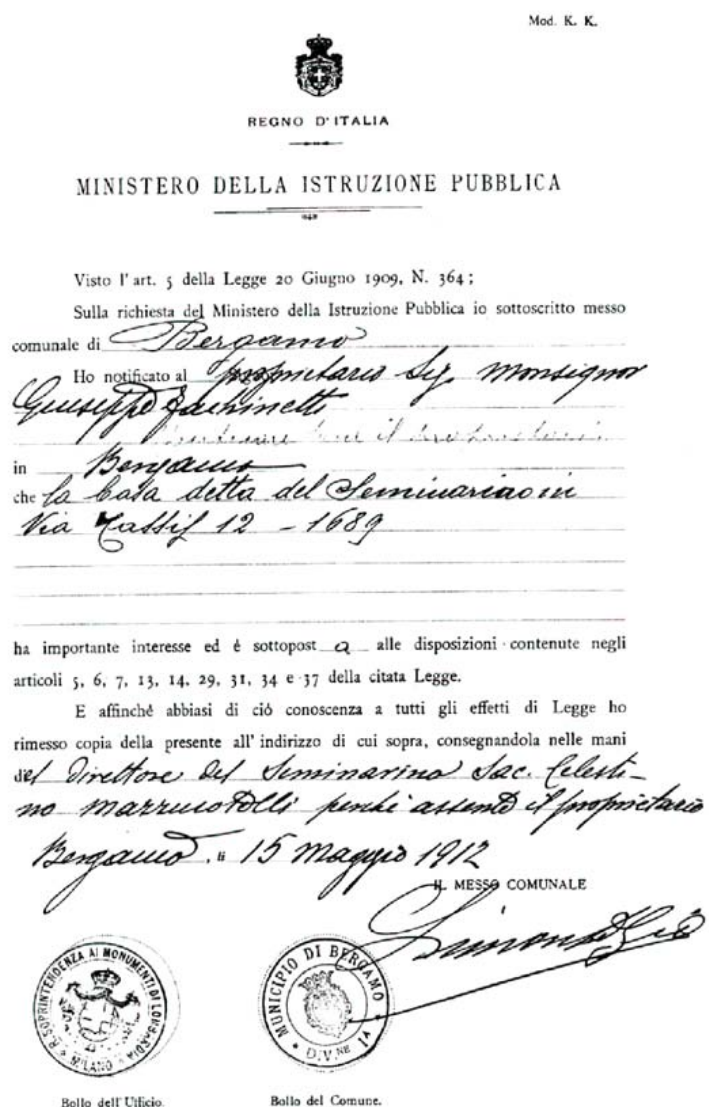 Mod. K. K.
REGNO D'ITALIA
MINISTERO DELLA ISTRUZIONE PUBBLICA
Visto l'art. 5 della Legge 20 Giugno 1909, N. 364;
Sulla richiesta del Ministero della Istruzione Pubblica io sottoscritto messo
comunale di Bergamo
Ho notificato al proprietario Sig. Monsignor
Giuseppe Fachinetti
in Bergamo
che la Casa detta del Seminarino in
Via Tassis 12 - 1689
ha importante interesse ed é sottopost a alle disposizioni contenute negli
articoli 5, 6, 7, 13, 14, 29, 31, 34 e 37 della citata Legge.
E affinché abbiasi di ció conoscenza a tutti gli effetti di Legge ho
rimesso copia della presente all'indirizzo di cui sopra, consegnandola nelle mani
del direttore del Seminarino Sac. Celesti-
no perché assente il proprietario
Bergamo, li 15 Maggio 1912
IL MESSO COMUNALE
R. SOPRINTENDENZA AI MONUMENTI DI LOMBARDIA
MILANO
MUNICIPIO DI BERGAMO
DIV.NE 1A
Bollo dell'Ufficio.
Bollo del Comune.